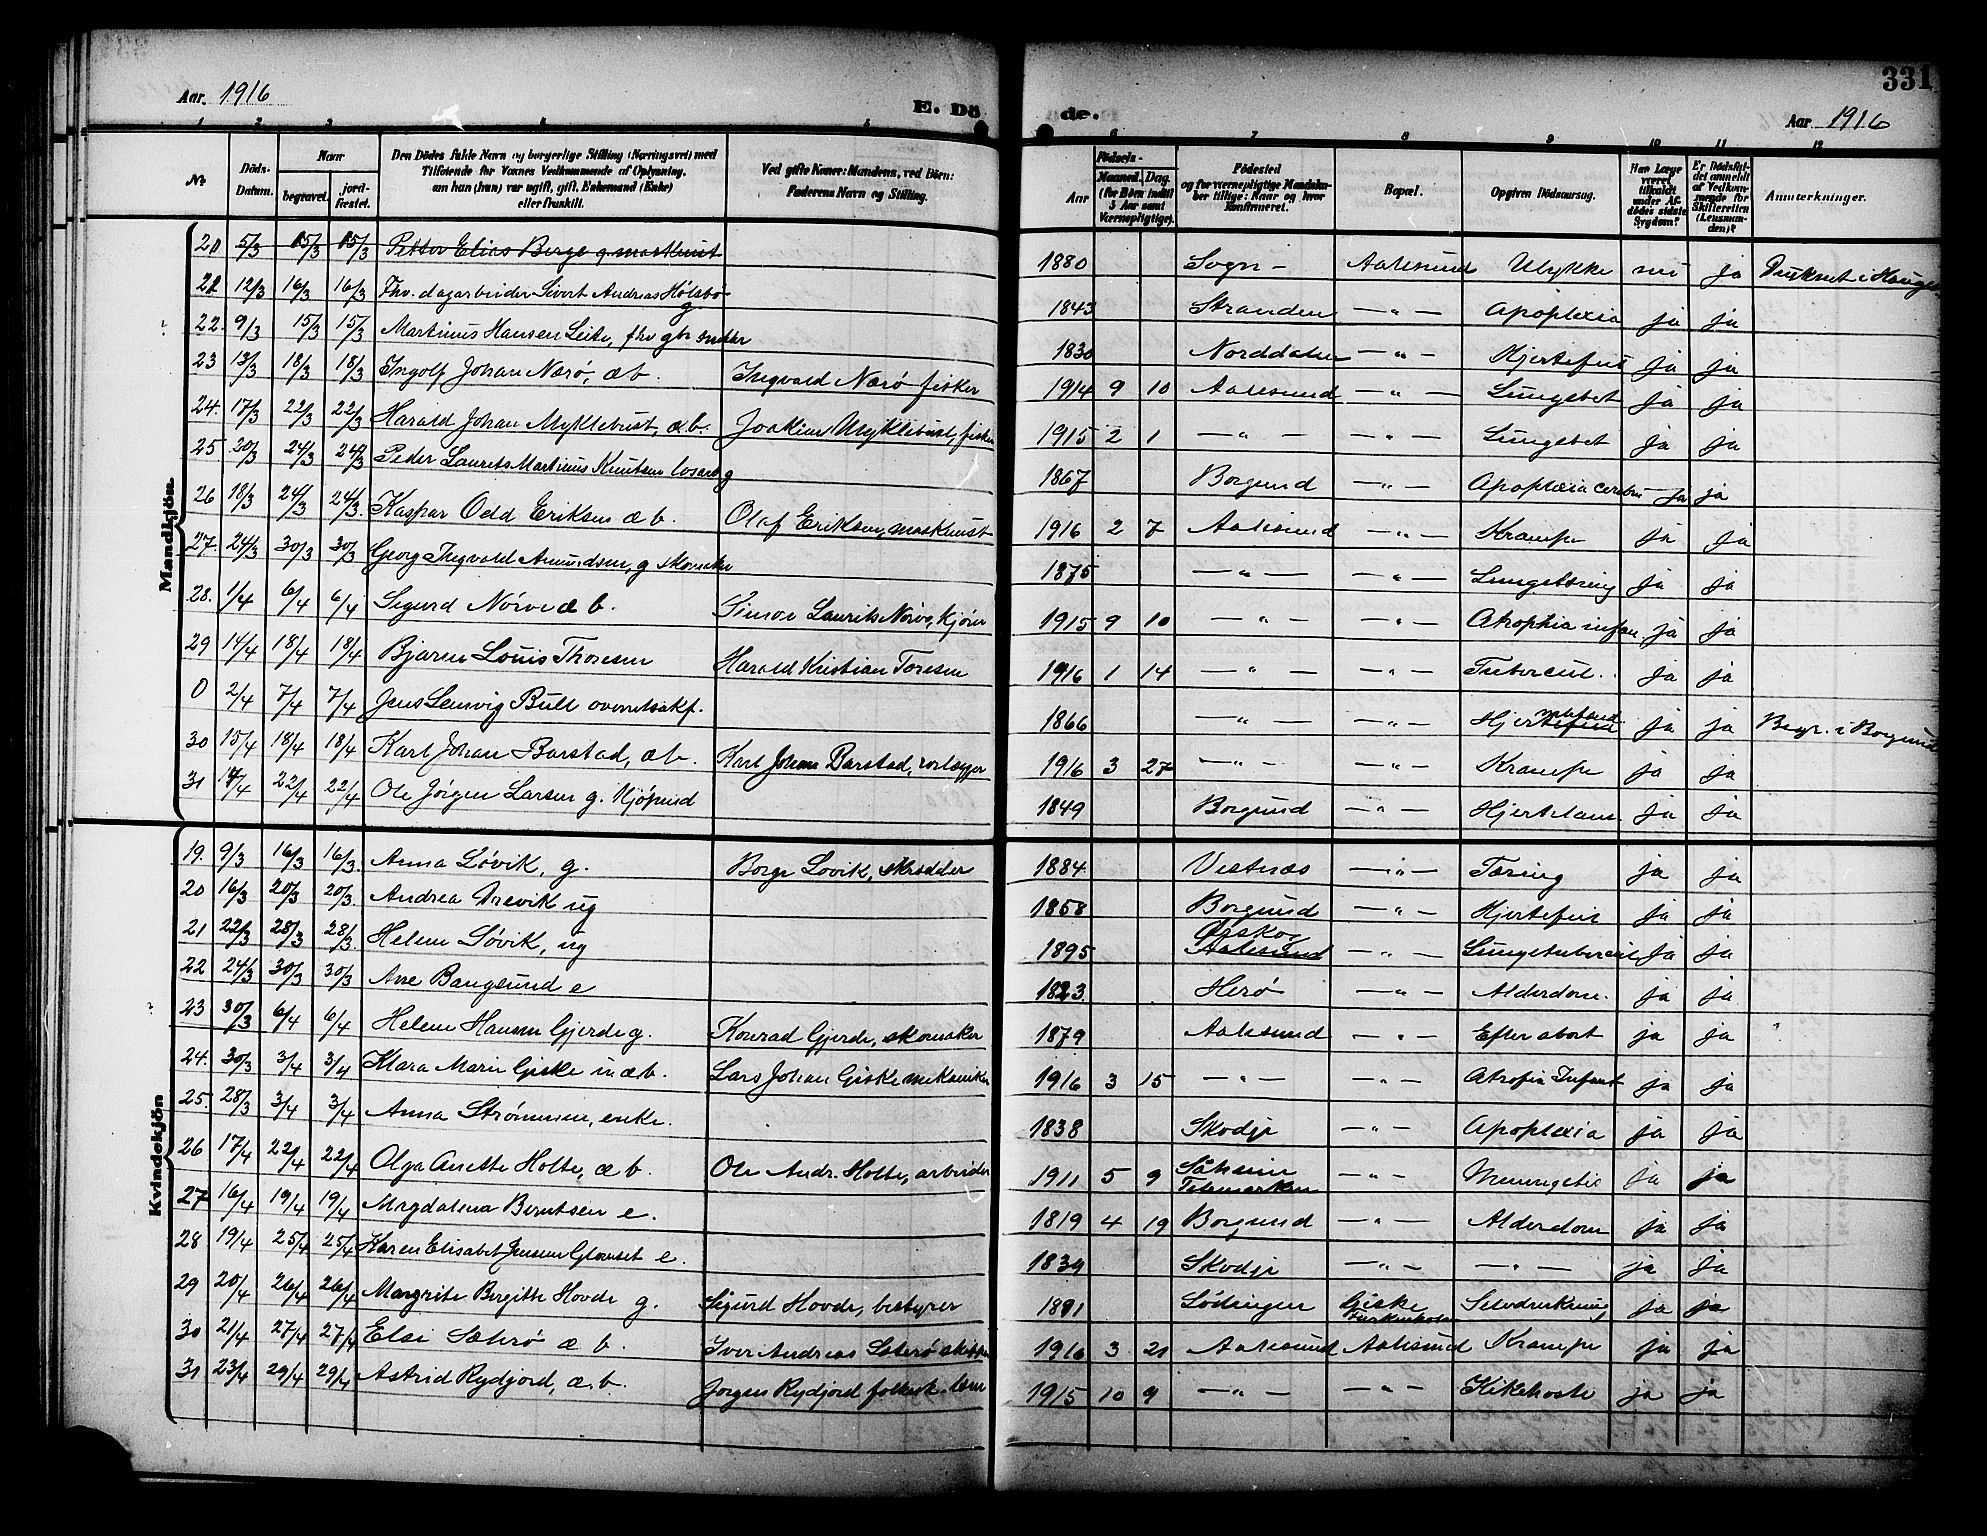 331
Aar 1916 E. Döde. Aar 1916
1 2 3 4 5 6 7 8 9 10 11 12
No.
Döds-Datum.
Naar begravet. jordfæstet.
Den Dödes fulde Navn og borgerlige Stilling (Næringsvei) med Tilföiende for Voxnes Vedkommende af Oplysning, om han (hun) var ugift, gift, Enkemand (Enke) eller fraskilt.
Ved gifte Koner: Mandens, ved Börn: Faderens Navn og Stilling.
Födsels- Aar Maaned. Dag. (for Börn indtil 5 Aar samt Værnepligtige).
Födested og for værnepligtige Mandskaber tillige: Naar og hvor konfirmeret.
Bopæl.
Opgiven Dödsaarsag.
Har Læge været tilkaldt under Afdödes sidste Sygdom?
Er Dödsfaldet anmeldt af Vedkommende for Skifteretten (Lensmanden)?
Anmærkninger.
Mandkjön
20 5/3 15/3 15/3 Petter Elias Berge g. maskinist 1880 Sogn - Aalesund Ulykke nei ja
21 12/3 16/3 16/3 Fhv. dagarbeider Sivert Andreas Holsbø g 1843 Stranden — " — Apoplexia ja ja
22. 9/3 15/3 15/3 Martinus Hansen Leite, fhv gbr 1830 Norddalen — " — Hjertefeil ja ja
23 13/3 18/3 18/3 Ingolf Johan Nærø, æ b. Ingvald Nærø fisker 1914 9 10 Aalesund — " — Lungebet ja ja
24. 17/3 22/3 22/3 Harald Johan Myklebust, æ. b. Joakim Myklebust, fisker 1915 2 1 — " — — " — Lungebet ja ja
25 20/3 24/3 24/3 Peder Laurits Martinus Knutsen losarb g 1867 Borgund — " — Apoplexia cerebri ja ja
26 18/3 24/3 24/3. Kaspar Odd Eriksen æ b. Olaf Eriksen, maskinist 1916 2 7 Aalesund — " — Krampe ja ja
27. 24/3 30/3 30/3 Georg Ingvald Amundsen, g skomaker 1875 — " — — " — Lungetæring ja ja
28. 1/4 6/4 6/4 Sigurd Nørve æ b. Simon Laurits Nørve, kjører 1915 9 10 — " — — " — Atrophia infan. ja ja
29 14/4 18/4 18/4 Bjarne Louis Thoresen Harald Kristian Toresen 1916 1 14 — " — — " — Tubercul. ja ja
0 2/4 7/4 7/4 Jens Lemvig Bull overretssakf. 1866 — " — — " — ja ja Begr. i Borgund
30 15/4 18/4 18/4 Karl Johan Barstad, æ b. Karl Johan Barstad, rørlægger 1916 3 27 — " — — " — Krampe ja ja
31 14/4 22/4 22/4 Ole Jørgen Larsen g. Kjøpmd 1849 Borgund — " — Hjertelam ja ja
Kvindekjön
19. 9/3 16/3 16/3 Anna Løvik, g. Borge Løvik, skrædder 1884 Vestnæs — " — Tæring ja ja
20 16/3 20/3 20/3 Andrea Drevik ug 1858 Borgund — " — Hjertefeil ja ja
21 22/3 28/3 28/3. Helene Løvik, ug 1895 Ørskog Aalesund — " — Lungetubercul ja ja
22 24/3 30/3 30/3 Ane Bangsund e 1823. Herø — " — Alderdom. ja ja
23 30/3 6/4 6/4 Helene Hansen Gjerde g. Konrad Gjerde, skomaker 1879 Aalesund — " — Efter abort ja ja
24. 30/3 3/4 3/4 Klara Marie Giske u æ b. Lars Johan Giske mekaniker 1916 3 15 — " — — " — Atrofia Infant ja ja
25. 28/3 3/4 3/4 Anna Strømmen, enke. 1838 Skodje — " — Apoplexia ja ja
26 17/4 22/4 22/4 Olga Anette Holte, æ b. Ole Andr. Holte, arbeider 1911 5 9 Saheim Telemarken — " — Meningetis ja ja
27 16/4 19/4 19/4 Magdalena Berntsen e. 1819 4 19 Borgund — " — Alderdom ja ja
28 19/4 25/4 25/4 Karen Elisabet Jensen Glomset e. 1839 Skodje — " — — " — ja ja
29 20/4 26/4 26/4 Margrite Birgitte Hovde g. Sigurd Hovde, bestyrer 1891 Lødingen Giske Selvdrukning ja ja
30 21/4 27/4 27/4 Elsi Sæterø æ b. Iver Andreas Sæterø skipper 1916 3 21 Aalesund Aalesund Krampe ja ja
31 23/4 29/4 29/4 Astrid Rydjord, æ. b. Jørgen Rydjord folkesk. lærer 1915 10 9 — " — — " — Kikehoste ja ja